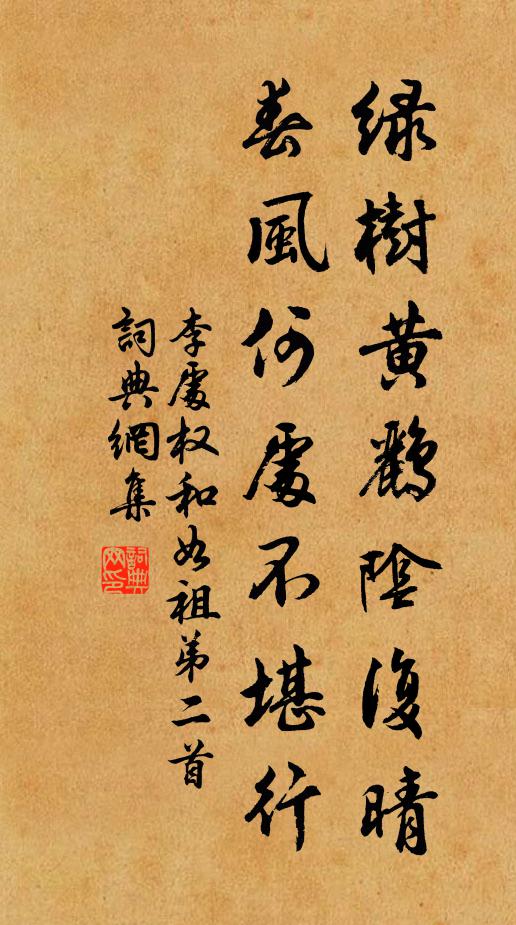 绿樹黄鸝陰復晴
春風何處不堪行
李處权和如祖弟二首
詞典網集
詞典網印